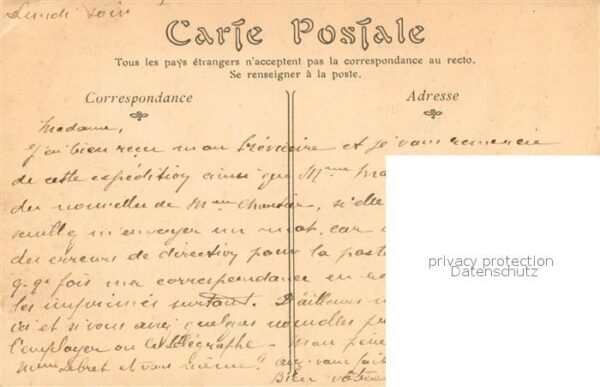 Lundi soir
Carte Postale
Tous les pays étrangers n'acceptent pas la correspondance au recto.
Se renseigner à la poste.
Correspondance
Adresse
Madame,
J'ai bien reçu mon Bréviaire et je vous remercie
de cette expédition ainsi que Mme
des nouvelles de Mme si elle
veuille m'envoyer un mot, car
des erreurs de direction pour la poste
q.q. fois ma correspondance en
les imprimés surtout. D'ailleurs
ici et si vous avez quelques nouvelles
l'employer ou le télégraphe - Mon
Mme Lebret et vous même." avez vous fait
Bien vôtre
privacy protection
Datenschutz